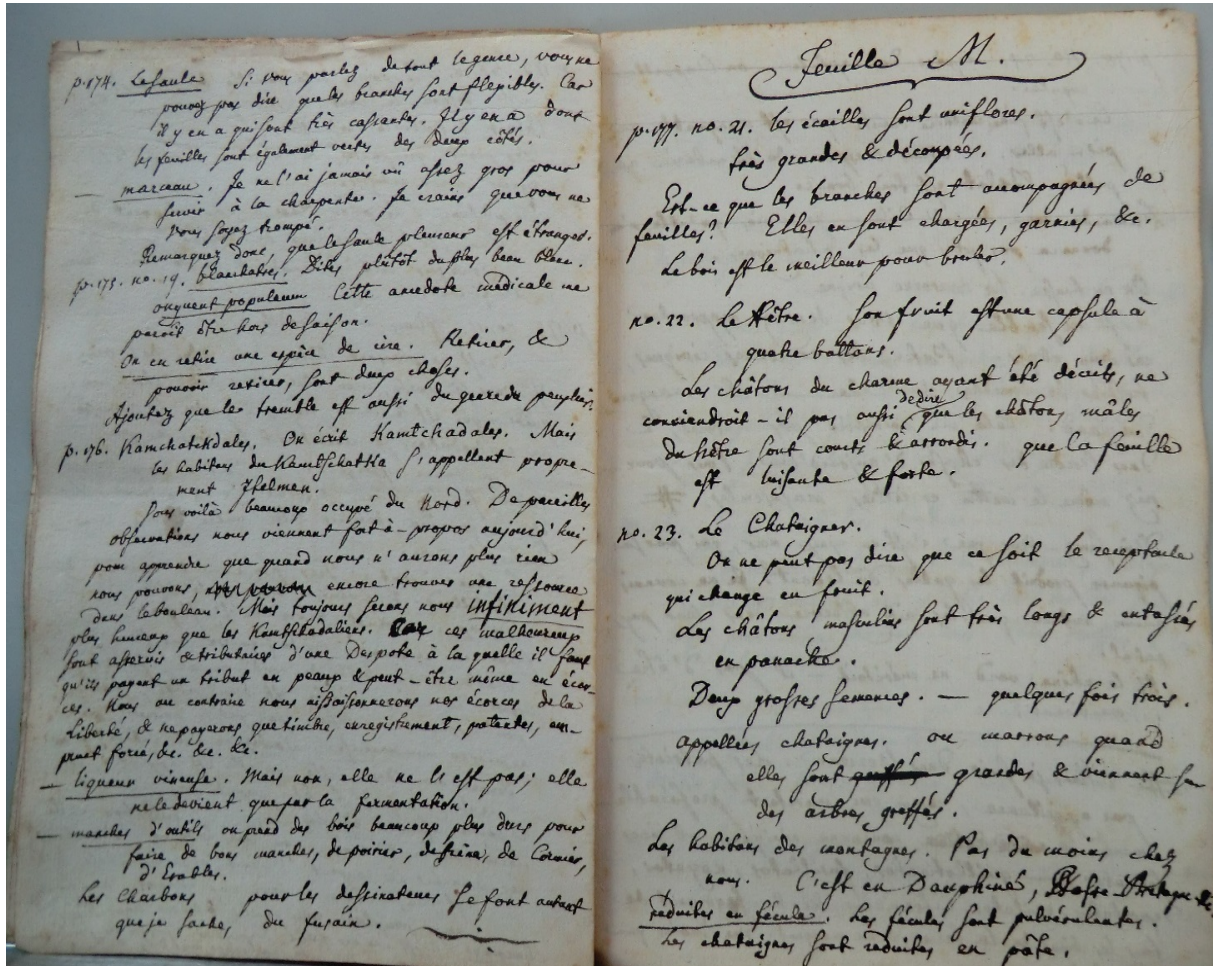 p. 174. Le saule Si vous parlez de tout le genre, vous ne
pouvez pas dire que les branches sont flexibles. Car
il y en a qui sont très cassantes. Il y en a dont
les feuilles sont également vertes des deux côtés.
— marceau. Je ne l'ai jamais vû assez gros pour
servir à la charpente. Je crains que vous ne
vous soyez trompé.
Remarquez donc, que le saule pleureur est étranger.
p. 175. no. 19. blanchatres. Dites plutôt du plus beau blanc.
onguent populeum Cette anecdote médicale me
paroit être hors de saison.
On en retire une espèce de cire. Retirer, &
pouvoir retirer, sont deux choses.
Ajoutez que le tremble est aussi du genre du peuplier.
p. 176. Kamchatckdales. On écrit Kamtchadales. Mais
les habitans du Kamtschatka s'appellent propre-
ment Itelmen.
Vous voilà beaucoup occupé du Nord. De pareilles
observations nous viennent fort à-propos aujourd'hui,
pour apprendre que quand nous n'aurons plus rien
nous pouvons, encore trouver une ressource
dans le bouleau. Mais toujours serons nous infiniment
plus heureux que les Kamtschadaliens. Car ces malheureux
sont asservis & tributaires d'une Despote à la quelle il faut
qu'ils payent un tribut en peaux & peut-être même en écor-
ces. Nous au contraire nous assaisonnerons nos écorces de la
Liberté, & ne payerons que timbre, enregistrement, patentes, em-
prunt forcé, &c. &c. &c.
— liqueur vineuse. Mais non, elle ne l'est pas; elle
ne le devient que par la fermentation.
— manches d'outils on prend des bois beaucoup plus durs pour
faire de bons manches, de poirier, de frêne, de Cormier,
d'Erables.
Les Charbons pour les dessinateurs se font autant
que je sache, du fusain.
Feuille M.
p. 177. no. 21. les écailles sont uniflores.
très grandes & découpées.
Est-ce que les branches sont accompagnées de
feuilles? Elles en sont chargées, garnies, &c.
Le bois est le meilleur pour bruler.
no. 22. Le Hêtre. Son fruit est une capsule à
quatre battans.
Les châtons du charme ayant été décrits, ne
conviendroit-il pas aussi de dire que les châtons mâles
du hêtre sont courts & arrondis. que la feuille
est luisante & forte.
no. 23. Le Chataigner.
On ne peut pas dire que ce soit le receptacle
qui change en fruit.
Les châtons masculins sont très longs & entassés
en panache.
Deux grosses semences. — quelques fois trois.
appellées chataignes. ou marrons quand
elles sont greffés grandes & viennent sur
des arbres greffés.
Les habitans des montagnes. Pas du moins chez
nous. C'est en Dauphiné, Basse Bretagne &c.
réduites en fécule. Les fécules sont pulvérulentes.
Les chataignes sont réduites en pâte.